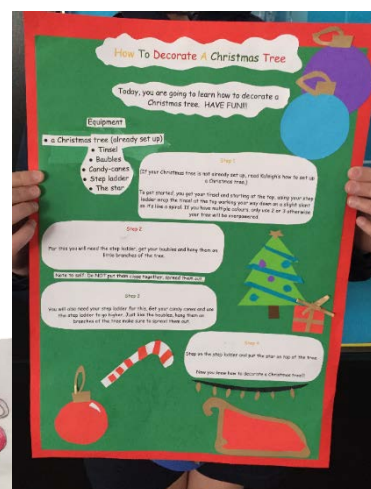 How To Decorate A Christmas Tree
Today, you are going to learn how to decorate a
Christmas tree. HAVE FUN!!!
Equipment
• a Christmas tree (already set up)
• Tinsel
• Baubles
• Candy-canes
• Step ladder
• The star
Step 1
(If your Christmas tree is not already set up, read how to set up
a Christmas tree.)
To get started, you get your tinsel and starting at the top, using your step
ladder wrap the tinsel at the top working your way down on a slight slant
so it's like a spiral. If you have multiple colours, only use 2 or 3 otherwise
your tree will be overpowered.
Step 2
For this you will need the step ladder, get your baubles and hang them on
little branches of the tree.
Note to self: Do NOT put them close together, spread them out.
Step 3
You will also need your step ladder for this. Get your candy canes and use
the step ladder to go higher. Just like the baubles, hang them on
branches of the tree make sure to spread them out.
Step 4
Step on the step ladder and put the star on top of the tree.
Now you know how to decorate a Christmas tree!!!